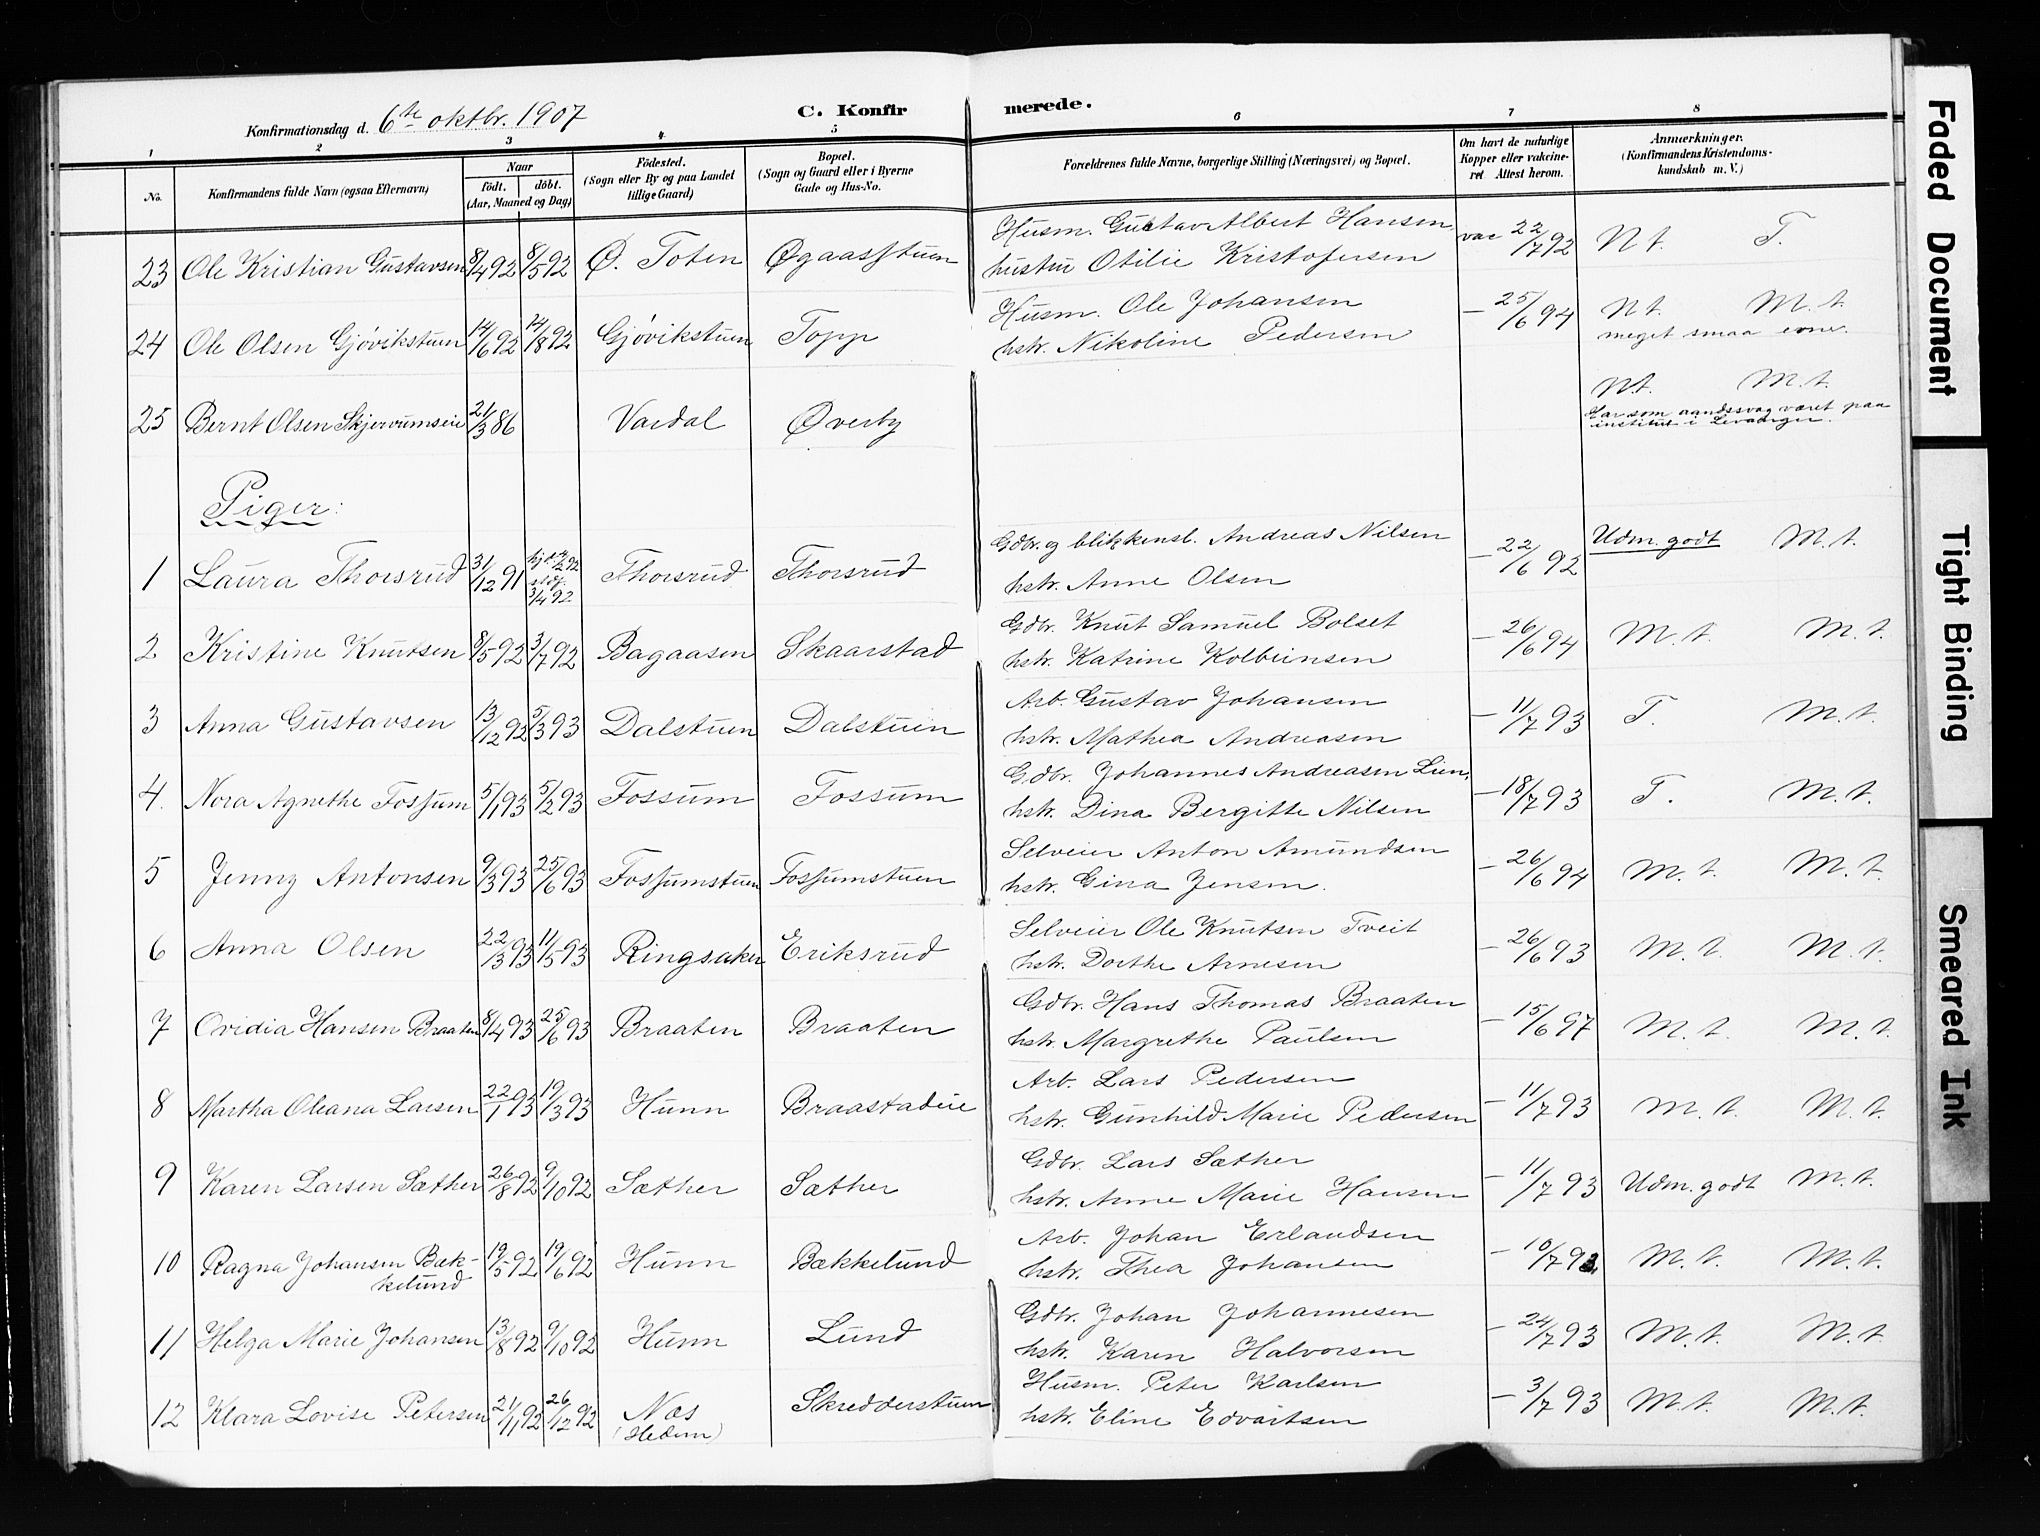 Konfirmationsdag d. 6te oktbr. 1907 C. Konfirmerede.
1 2 3 4 5 6 7 8
No. Konfirmandens fulde Navn (ogsaa Efternavn) Naar født. døbt. (Aar, Maaned og Dag) Fødested. (Sogn eller By og paa Landet tillige Gaard) Bopæl. (Sogn og Gaard eller i Byerne Gade og Hus-No. Forældrenes fulde Navne, borgerlige Stilling (Næringsvei) og Bopæl. Om havt de naturlige Kopper eller vakcineret Attest herom. Anmærkninger. (Konfirmandens Kristendomskundskab m. V.)
23 Ole Kristian Gustavsen 8/4 92 8/5 92 Ø. Toten Øgaasstuen Husm. Gustav Albert Hansen vac 22/7 92 N t. T.
hustru Otilie Kristofersen
24 Ole Olsen Gjøvikstuen 14/6 92 14/8 92 Gjøvikstuen Topp Husm. Ole Johansen - 25/6 94 N t. M. t.
hstr. Nikoline Pedersen meget smaa evne.
25 Bernt Olsen Skjervumseie 21/3 86 Vardal Øverby N t. M. t.
Har som aandssvag været paa
institut i Levanger.
Piger:
1 Laura Thorsrud 31/12 91 Thorsrud Thorsrud Gdbr. og blikkensl. Andreas Nilsen - 22/6 92 Udm. godt M. t.
3/4 92 hstr. Anne Olsen
2 Kristine Knutsen 8/5 92 3/7 92 Bagaasen Skaarstad Gdbr. Knut Samuel Bolset - 26/6 94 M. t. M. t.
hstr. Katrine Kolbeinsen
3 Anna Gustavsen 13/12 92 5/3 93 Dalstuen Dalstuen Arb. Gustav Johansen - 11/7 93 T. M. t.
hstr. Mathea Andreasen
4. Nora Agnethe Fossum 5/1 93 5/2 93 Fossum Fossum Gdbr. Johannes Andreasen Lien, - 18/7 93 T. M. t.
hstr. Dina Bergitte Nilsen
5 Jenny Antonsen 9/3 93 25/6 93 Fossumstuen Fossumstuen Selveier Anton Amundsen - 26/6 94 M. t. M. t.
hstr. Gina Jensen.
6 Anna Olsen 22/3 93 11/5 93 Ringsaker Eriksrud Selveier Ole Knutsen Tveit - 26/6 93 M. t. M. t.
hstr. Dorthe Arnesen
7 Ovidia Hansen Braaten 8/4 93 25/6 93 Braaten Braaten Gdbr. Hans Thomas Braaten - 15/6 97 M. t. M. t.
hstr. Margrethe Paulsen
8 Martha Oleana Larsen 22/1 93 19/3 93 Hunn Braastadeie Arb. Lars Pedersen - 11/7 93 M. t. M. t.
hstr. Gunhild Marie Pedersen
9 Karen Larsen Sæther 26/8 92 9/10 92 Sæther Sæther Gdbr. Lars Sæther - 11/7 93 Udm. godt M. t.
hstr. Anne Marie Hansen
10 Ragna Johansen Bæk- 19/5 92 19/6 92 Hunn Bækkelund Arb. Johan Erlandsen - 10/7 93. M. t. M. t.
kelund hstr. Thea Johansen
11 Helga Marie Johansen 13/8 92 9/10 92 Hunn Lund Gdbr. Johan Johannesen - 24/7 93 M. t. M. t.
hstr. Karen Halvorsen
12 Klara Lovise Petersen 21/11 92 26/12 92 Næs Skredderstuen Husm. Peter Karlsen - 3/7 93 M. t. M. t.
(Hedem) hstr. Eline Edvartsen
Faded Document
Tight Binding
Smeared Ink